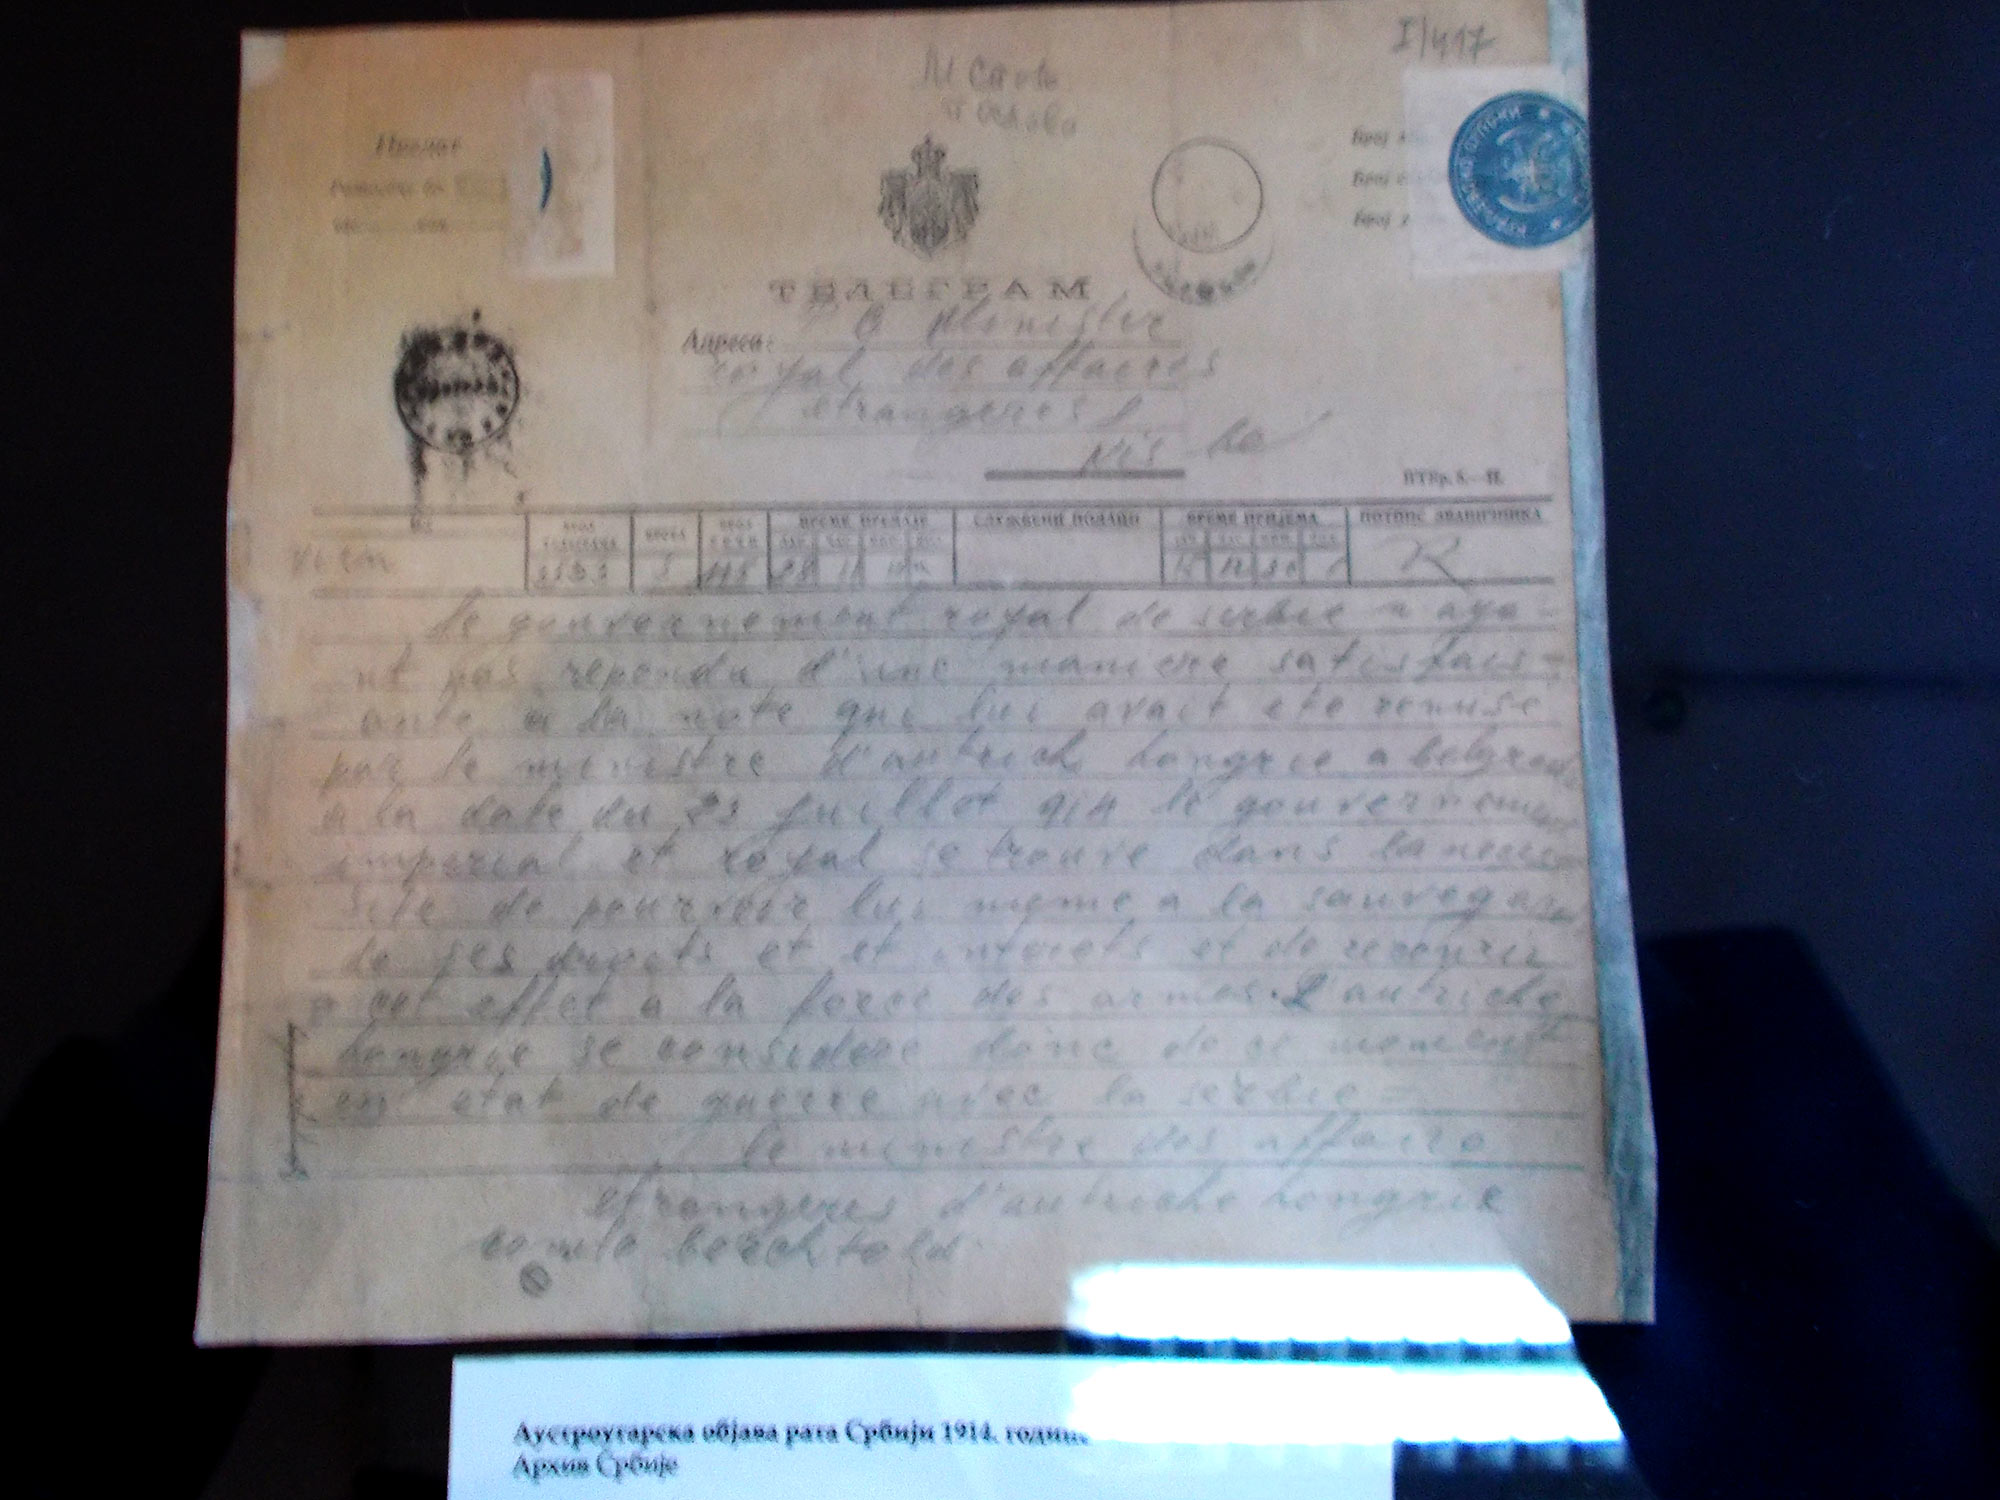 I/417
ТЕЛЕГРАМ
Адреса:
Ministre
royal des affaires
etrangeres
Nis
ПТБр. 8.—II.
ВРЕМЕ ПРЕДАЈЕ СЛУЖБЕНИ ПОДАЦИ ВРЕМЕ ПРИЈЕМА ПОТПИС ЗВАНИЧНИКА
R
le gouvernement royal de serbie n aya-
nt pas repondu d'une maniere satisfais-
ante a la note qui lui avait ete remise
par le ministre d'autrich hongrie a belgrade
a la date du 23 juillot 914 le gouvernement
imperial et royal se trouve dans la neces
site de pourvoir lui meme a la sauvegar
de ses droits et et interets et de recourir
a cet effet a la force des armes. L'autriche
hongrie se considere donc de ce moment
en etat de guerre avec la serbie =
le ministre des affaire
etrangeres d'autriche hongrie
comte berchtold
Аустроугарска објава рата Србији 1914. године
Архив Србије